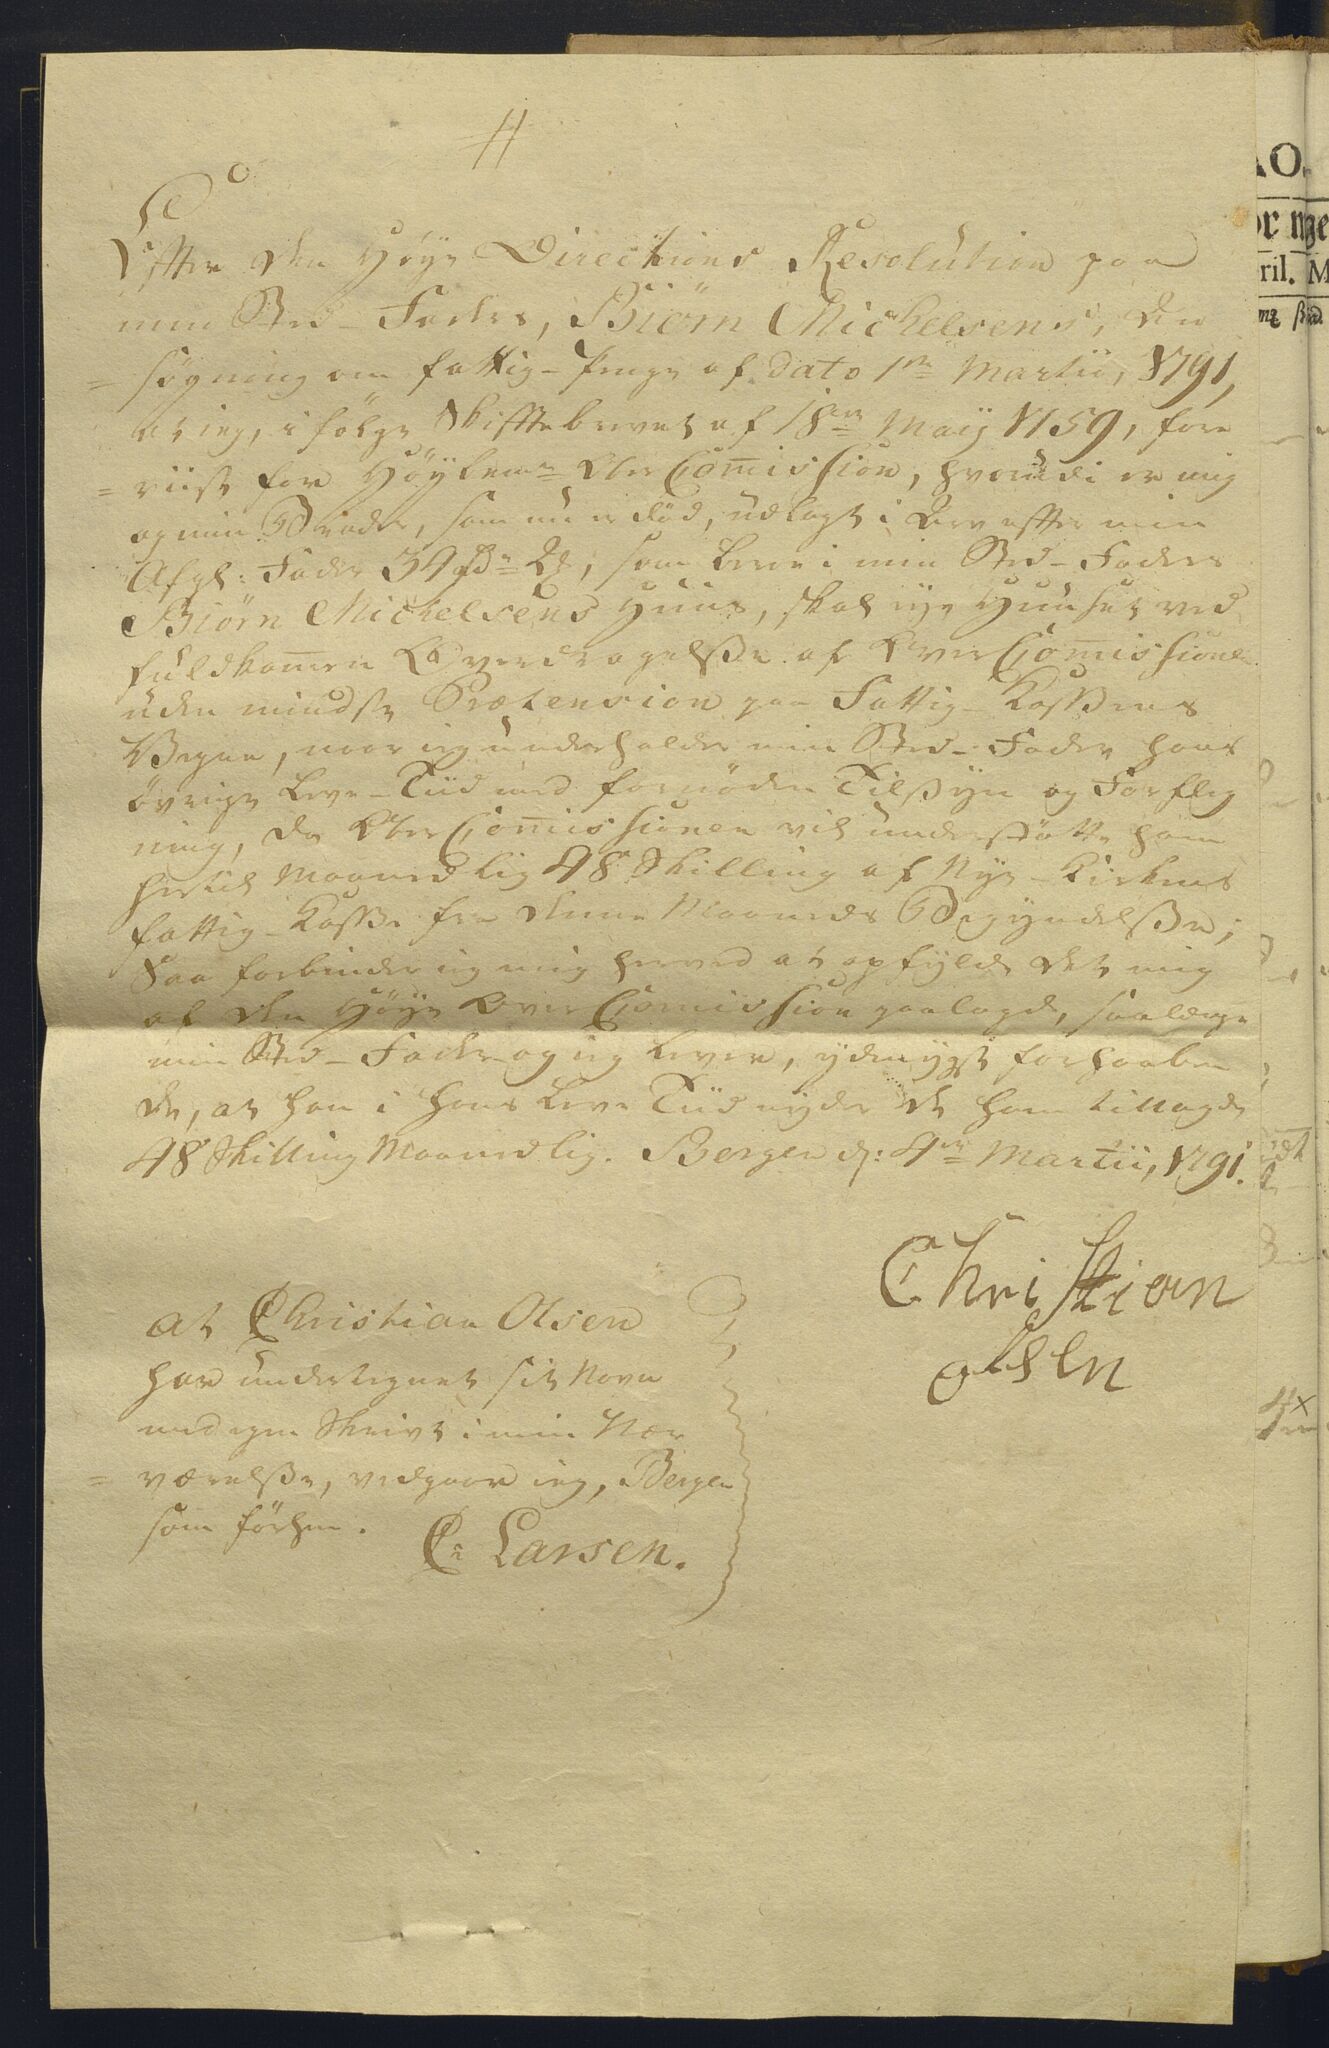 H
Efter den Høye Directions Resolution paa
min Sted-Faders, Biørn Michelsens, An
= søgning om fattig-Penge af dato 1ste Martii, 1791,
at ieg, i følge Skifftebrevet af 18de Maij 1759, fore
= viist for Høybem.te OverCom̅ission, hvorudi er mig
og min Broder, som nu er død, udlagt i Arv efter min
Afgl: Fader 39 Rdr
Biørn Michelsens Huus, skal eye Huuset ved
fuldkom̅en Overdragelsse af OverCom̅issionen
uden mindste Prætension paa Fattig-Kassens
Vegne, naar ieg underholder min Sted-Fader hans
øvrige Leve-Tiid med fornøden Tilssyn og Forfleg
ning, da OverCom̅issionen vil understøtte ham
hertil Maanedlig 48 Skilling af Nye-Kirkens
fattig-Kasse fra denne Maaneds Begyndelsse;
Saa forbinder ieg mig herved at opfylde det mig
af den Høye OverCom̅ission paalagde, saalænge
min Sted-Fader og ieg lever, ydmygst forhaaben
de, at han i hans Leve Tiid nyder de ham tillagde
48 Skilling Maanedlig. Bergen d: 4de Martii, 1791.
Christian
olsen
at Christian Olsen
har undertegnet sit Navn
med egen Skrivt i min Nær
= værelsse, vedgaar ieg, Bergen
som førhen.
C: Larsen.